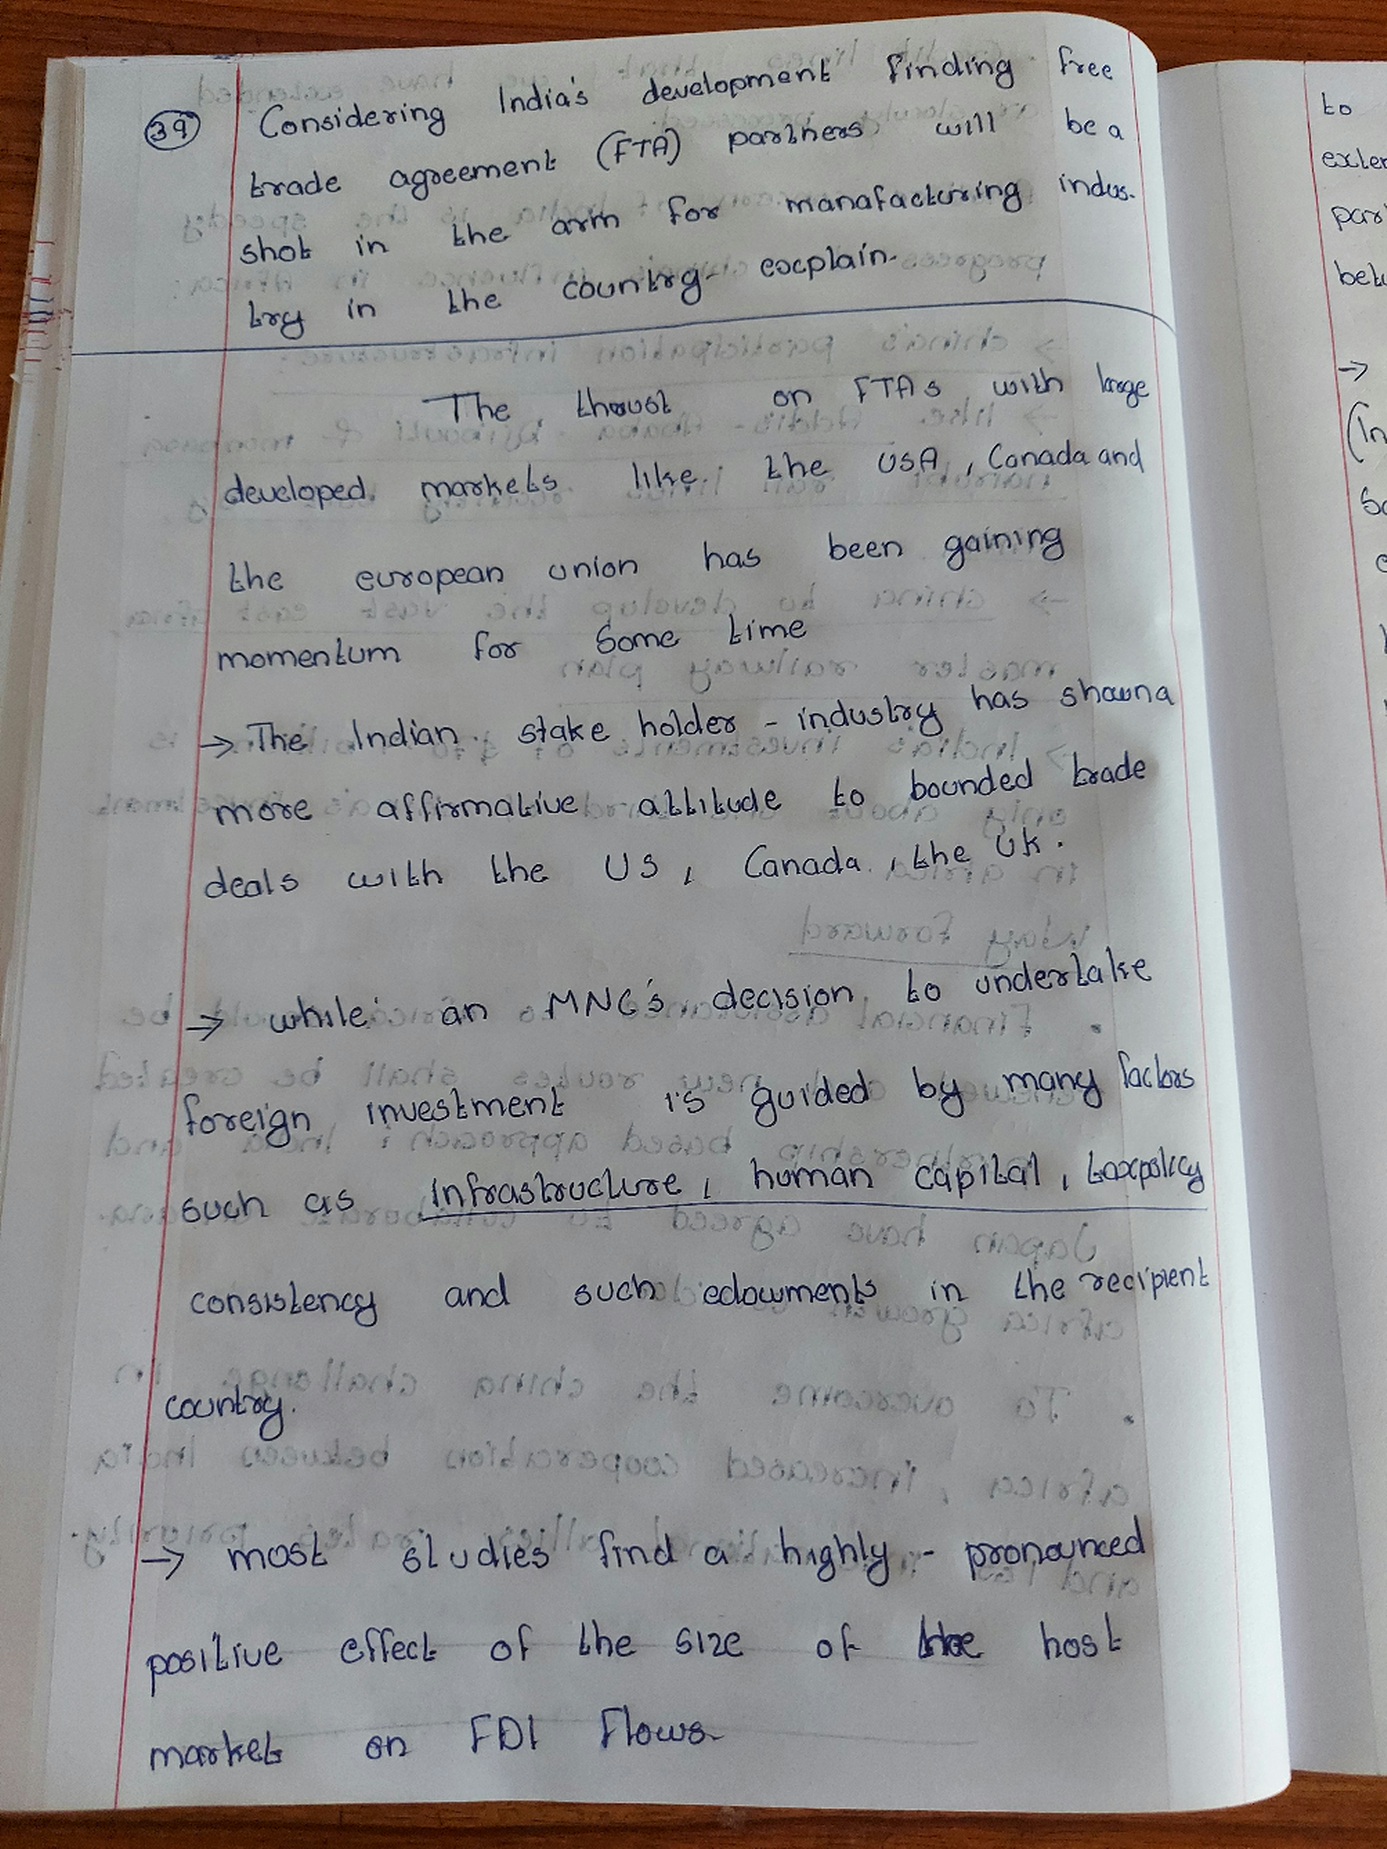 39 Considering India's development finding free
trade agreement (FTA) partners will be a
shot in the arm for manafacturing indus-
try in the country- explain-
The thrust on FTAs with large
developed markets like the USA, Canada and
the european union has been gaining
momentum for some time
→ The Indian stake holder - industry has shown a
more affirmative attitude to bounded trade
deals with the US, Canada, the UK.
→ while an MNC's decision to undertake
foreign investment is guided by many factors
such as infrastructure, human capital, taxpolicy
consistency and such edowments in the recipient
country.
→ most studies find a highly - pronounced
positive effect of the size of the host
market on FDI flows-
to